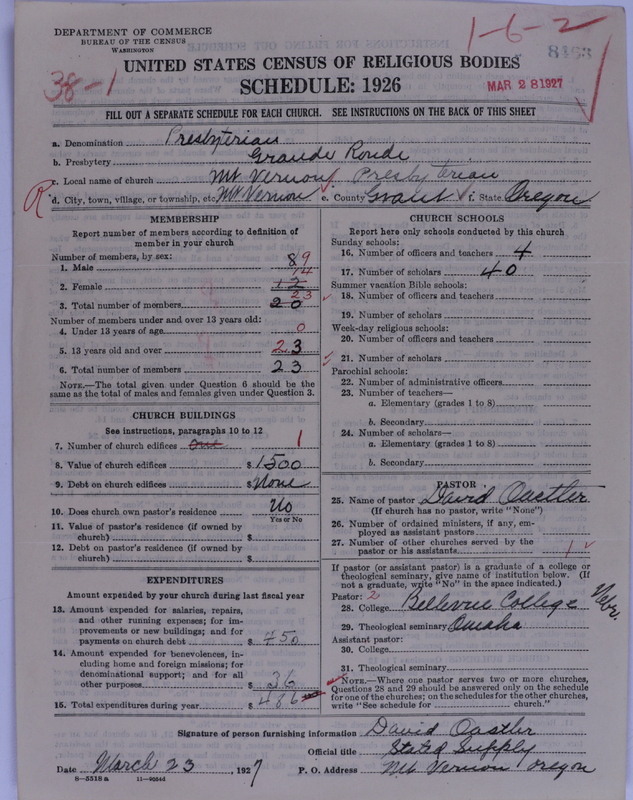 DEPARTMENT OF COMMERCE
BUREAU OF THE CENSUS
WASHINGTON
1-6-2
8153
38-1
UNITED STATES CENSUS OF RELIGIOUS BODIES
SCHEDULE: 1926
MAR 28 1927
FILL OUT A SEPARATE SCHEDULE FOR EACH CHURCH. SEE INSTRUCTIONS ON THE BACK OF THIS SHEET
a. Denomination Presbyterian
b. Presbytery Grande Ronde
c. Local name of church Mt Vernon Presbyterian
R d. City, town, village, or township, etc. Mt Vernon e. County Grant f. State Oregon
MEMBERSHIP
Report number of members according to definition of member in your church
Number of members, by sex:
1. Male 8 9
2. Female 12 14
3. Total number of members 20 23
Number of members under and over 13 years old:
4. Under 13 years of age 0
5. 13 years old and over 23
6. Total number of members 23
NOTE.—The total given under Question 6 should be the same as the total of males and females given under Question 3.
CHURCH BUILDINGS
See instructions, paragraphs 10 to 12
7. Number of church edifices One 1
8. Value of church edifices $ 1500
9. Debt on church edifices $ None
10. Does church own pastor's residence No
Yes or No
11. Value of pastor's residence (if owned by church) $
12. Debt on pastor's residence (if owned by church) $
EXPENDITURES
Amount expended by your church during last fiscal year
13. Amount expended for salaries, repairs, and other running expenses; for improvements or new buildings; and for payments on church debt $ 450
14. Amount expended for benevolences, including home and foreign missions; for denominational support; and for all other purposes $ 36
15. Total expenditures during year $ 486
CHURCH SCHOOLS
Report here only schools conducted by this church
Sunday schools:
16. Number of officers and teachers 4
17. Number of scholars 40
Summer vacation Bible schools:
18. Number of officers and teachers
19. Number of scholars
Week-day religious schools:
20. Number of officers and teachers
21. Number of scholars
Parochial schools:
22. Number of administrative officers
23. Number of teachers—
a. Elementary (grades 1 to 8)
b. Secondary
24. Number of scholars—
a. Elementary (grades 1 to 8)
b. Secondary
PASTOR
25. Name of pastor David Oastler
(If church has no pastor, write "None")
26. Number of ordained ministers, if any, employed as assistant pastors
27. Number of other churches served by the pastor or his assistants 1
If pastor (or assistant pastor) is a graduate of a college or theological seminary, give name of institution below. (If not a graduate, write "No" in the space indicated.)
Pastor: 2
28. College Bellevue College Nebr.
29. Theological seminary Omaha
Assistant pastor:
30. College
31. Theological seminary
NOTE.—Where one pastor serves two or more churches, Questions 28 and 29 should be answered only on the schedule for one of the churches; on the schedules for the other churches, write "See schedule for church."
Signature of person furnishing information David Oastler
Official title Stated Supply
Date March 23, 1927 P. O. Address Mt Vernon Oregon
8-5518 a